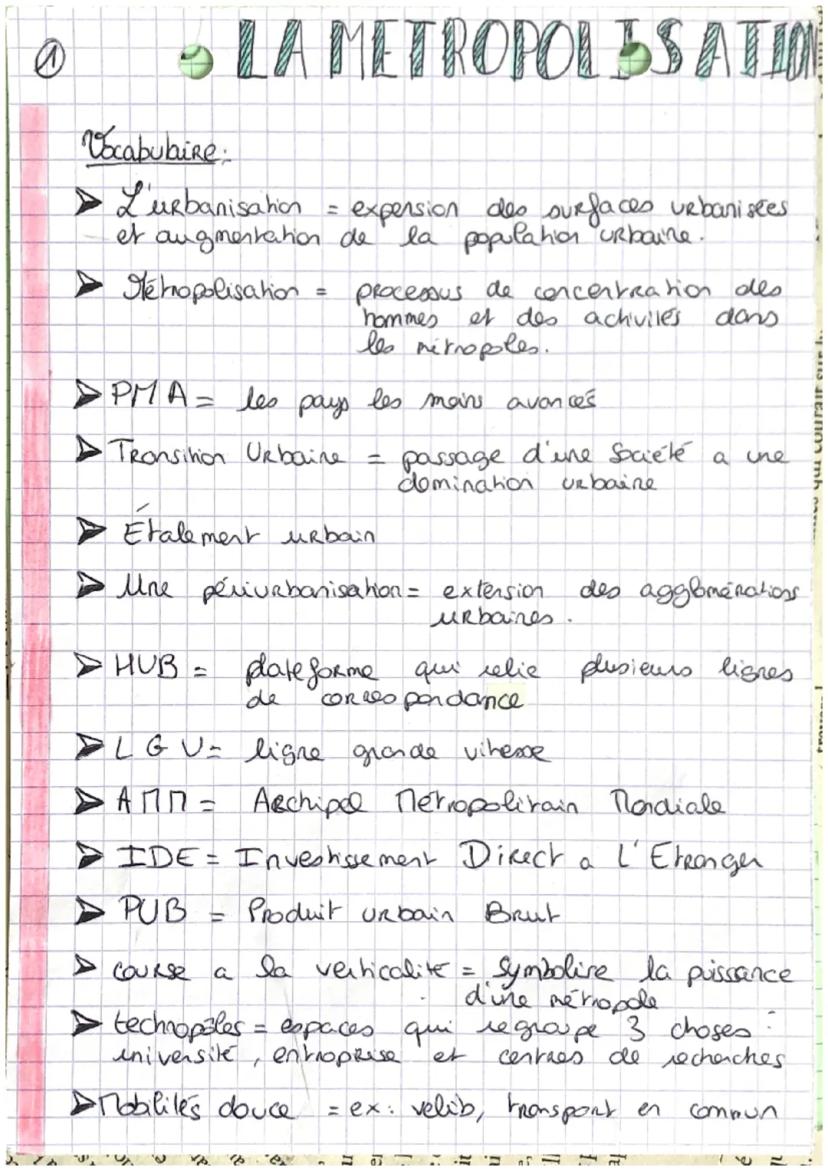 1
LA METROPOLISATION
Vocabulaire:
➤ L'urbanisation = expension des surfaces urbanisées
et augmentation de la population urbaine.
➤ Métropolisation = processus de concentration des
hommes et des activités dans
les métropoles.
➤ PMA = les pays les moins avancés
➤ Transition Urbaine = passage d'une société a une
domination urbaine
➤ Étalement urbain
➤ Une périurbanisation = extension des agglomérations
urbaines.
➤ HUB = plateforme qui relie plusieurs lignes
de correspondance
➤ LGV = ligne grande vitesse
➤ AMM = Archipel Métropolitain Mondiale
➤ IDE = Investissement Direct a L'Etranger
➤ PUB = Produit urbain Brut
➤ course a la verticalité = symbolise la puissance
d'une métropole
➤ technopôles = espaces qui regroupe 3 choses :
université, entreprise et centres de recherches
➤ Mobilités douce = ex: velib, transport en commun